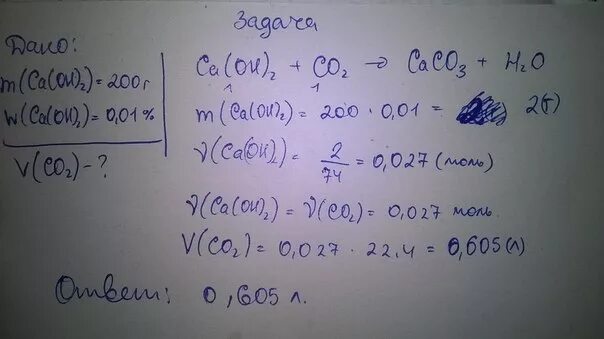 Задача
Дано:
m(Ca(OH)₂) = 200 г
w(Ca(OH)₂) = 0,01 %
V(CO₂) - ?
Ca(OH)₂ + CO₂ → CaCO₃ + H₂O
1 1
m(Ca(OH)₂) = 200 · 0,01 = 2(г)
ν(Ca(OH)₂) = 2/74 = 0,027 (моль)
ν(Ca(OH)₂) = ν(CO₂) = 0,027 моль.
V(CO₂) = 0,027 · 22,4 = 0,605 (л)
Ответ: 0,605 л.